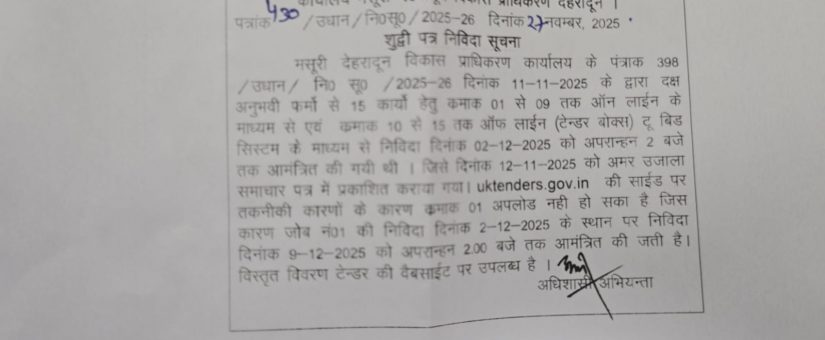 कार्यालय मसूरी विकास प्राधिकरण देहरादून ।
पत्रांक 430 / उधान / नि0सू0 / 2025-26 दिनांक 27 नवम्बर, 2025
शुद्वी पत्र निविदा सूचना
मसूरी देहरादून विकास प्राधिकरण कार्यालय के पंत्राक 398
/उधान/ नि0 सू0 /2025-26 दिनांक 11-11-2025 के द्वारा दक्ष
अनुभवी फर्मो से 15 कार्यो हेतु कमाक 01 से 09 तक ऑन लाईन के
माध्यम से एवं कमाक 10 से 15 तक ऑफ लाईन (टेन्डर बोक्स) टू बिड
सिस्टम के माध्यम से निविदा दिनांक 02-12-2025 को अपरान्हन 2 बजे
तक आमंत्रित की गयी थी । जिसे दिनांक 12-11-2025 को अमर उजाला
समाचार पत्र में प्रकाशित कराया गया। uktenders.gov.in की साईड पर
तकनीकी कारणों के कारण क्रमाक 01 अपलोड नही हो सका है जिस
कारण जोब नं01 की निविदा दिनांक 2-12-2025 के स्थान पर निविदा
दिनांक 9-12-2025 को अपरान्हन 2.00 बजे तक आमंत्रित की जती है।
विस्तृत विवरण टेन्डर की वैबसाईट पर उपलब्ध है ।
अधिशासी अभियन्ता